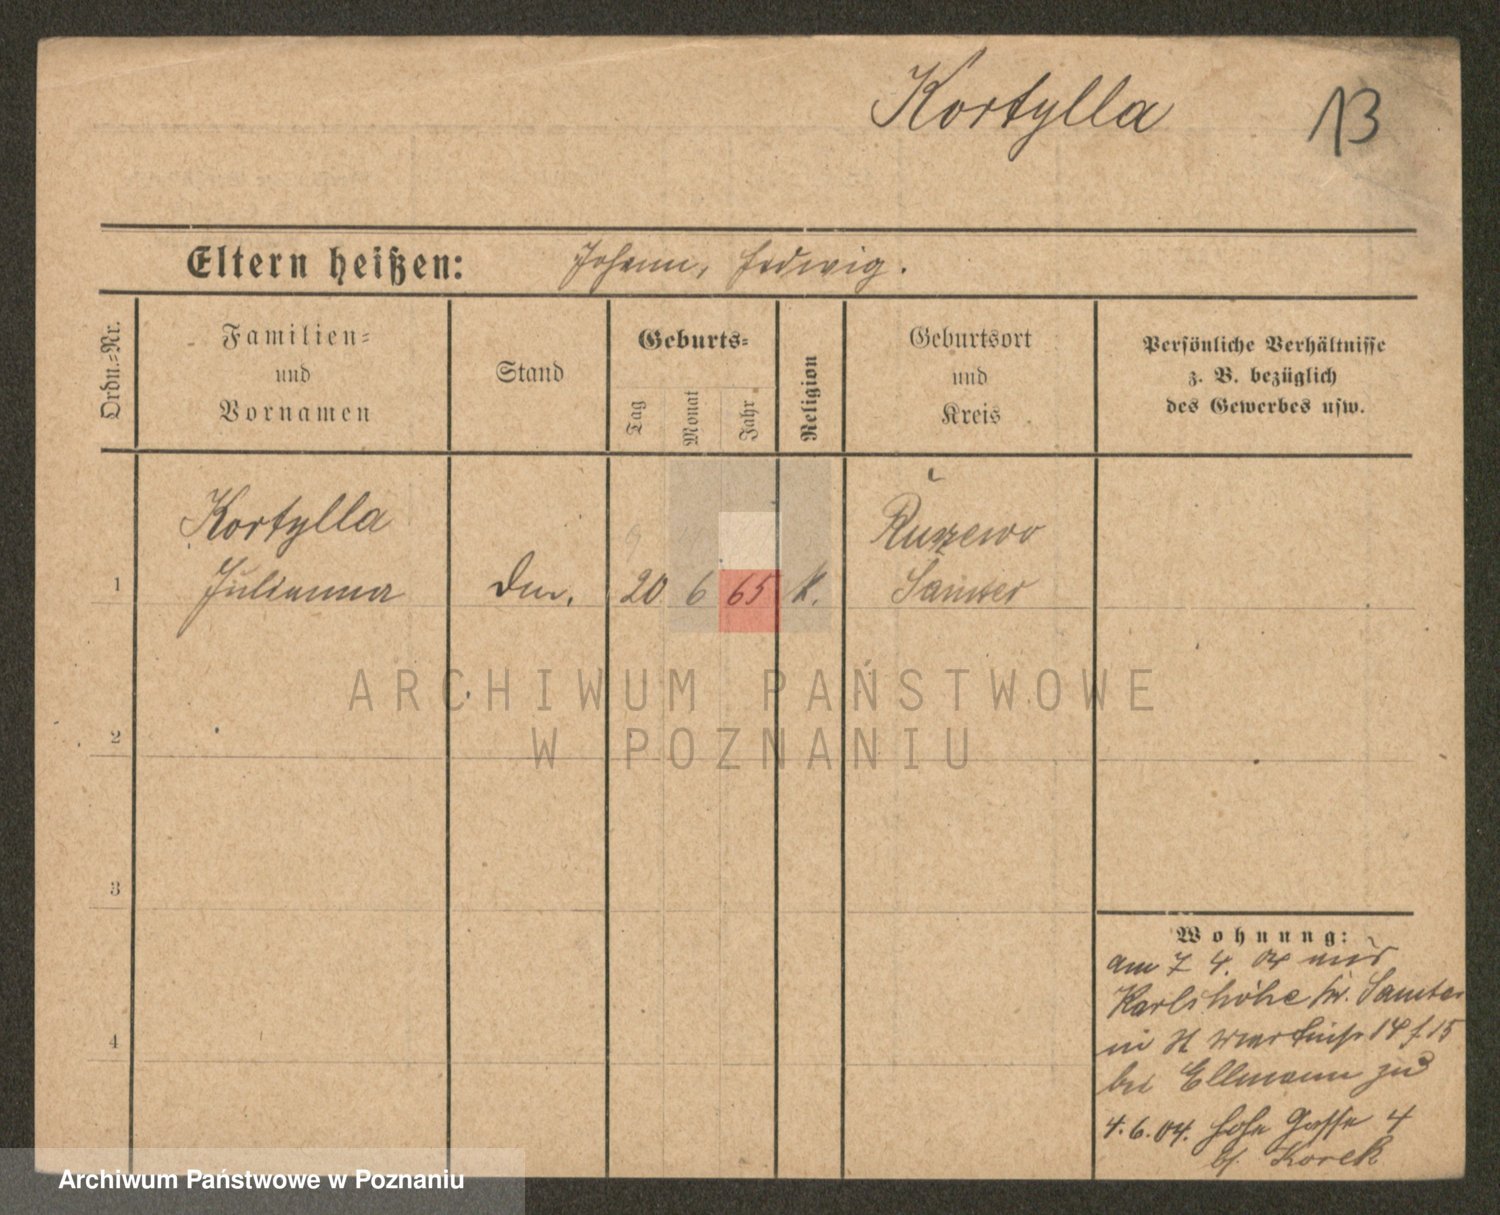 Kortylla
13
Eltern heißen: Johann, Hedwig.
Ordn.-Nr.
Familien-
und
Vornamen
Stand
Geburts-
Tag
Monat
Jahr
Religion
Geburtsort
und
Kreis
Persönliche Verhältnisse
z. B. bezüglich
des Gewerbes usw.
1
Kortylla
Julianna
20 6 65 k.
Samter
2
ARCHIWUM PAŃSTWOWE
W POZNANIU
3
4
Wohnung:
am 7 4. 04 aus
Karlshöhe Kr. Samter
in St 14 / 15
bei Ellmann zu
4.6.04. Hohe Gasse 4
bf. Korek
Archiwum Państwowe w Poznaniu